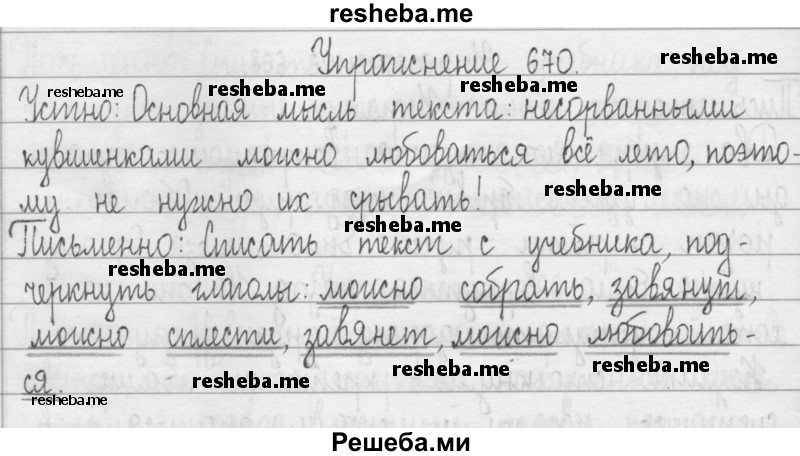 resheba.me
Упражнение 670.
resheba.me resheba.me resheba.me
Устно: Основная мысль текста: несорванными
кувшинками можно любоваться всё лето, поэто-
resheba.me
му не нужно их срывать!
resheba.me
Письменно: Списать текст с учебника, под-
resheba.me
черкнуть глаголы: можно собрать, завянут,
можно сплести, завянет, можно любовать-
resheba.me resheba.me resheba.me
ся.
resheba.me
Решеба.ми